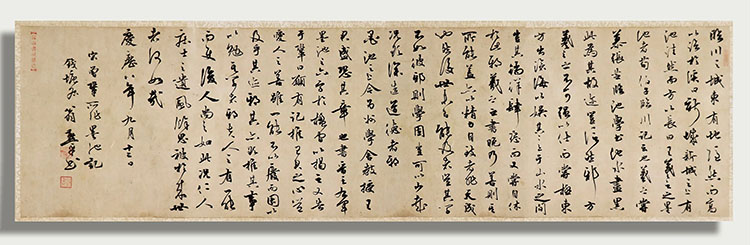 臨川之城東有地隱然而高
以臨於溪曰新城新城之上有
池窪然而方以長曰王羲之之墨
池者荀伯子臨川記云也羲之嘗
慕張芝臨池學書池水盡黑
此為其故迹豈信然邪方
羲之之不可強以仕而嘗極東
方出滄海以娛其意于山水之間
豈其徜徉肆恣而又嘗自休
於此邪羲之之書晚乃善則其
所能蓋亦以精力自致者非天成
也然後世未有能及者豈其學
不如彼邪則學固豈可以少哉
況欲深造道德者邪
墨池之上今為州學舍教授王
君盛恐其不章也書晉王右軍
墨池之六字於楹間以揭之又告
于鞏曰願有記推王君之心豈
愛人之善雖一能不以廢而因以
及乎其迹邪其亦欲推其事
以勉其學者邪夫人之有一能
而使後人尚之如此況仁人
莊士之遺風餘思被於來世
者何如哉
慶曆八年九月十二日
宋曾鞏作墨池記
錢塘